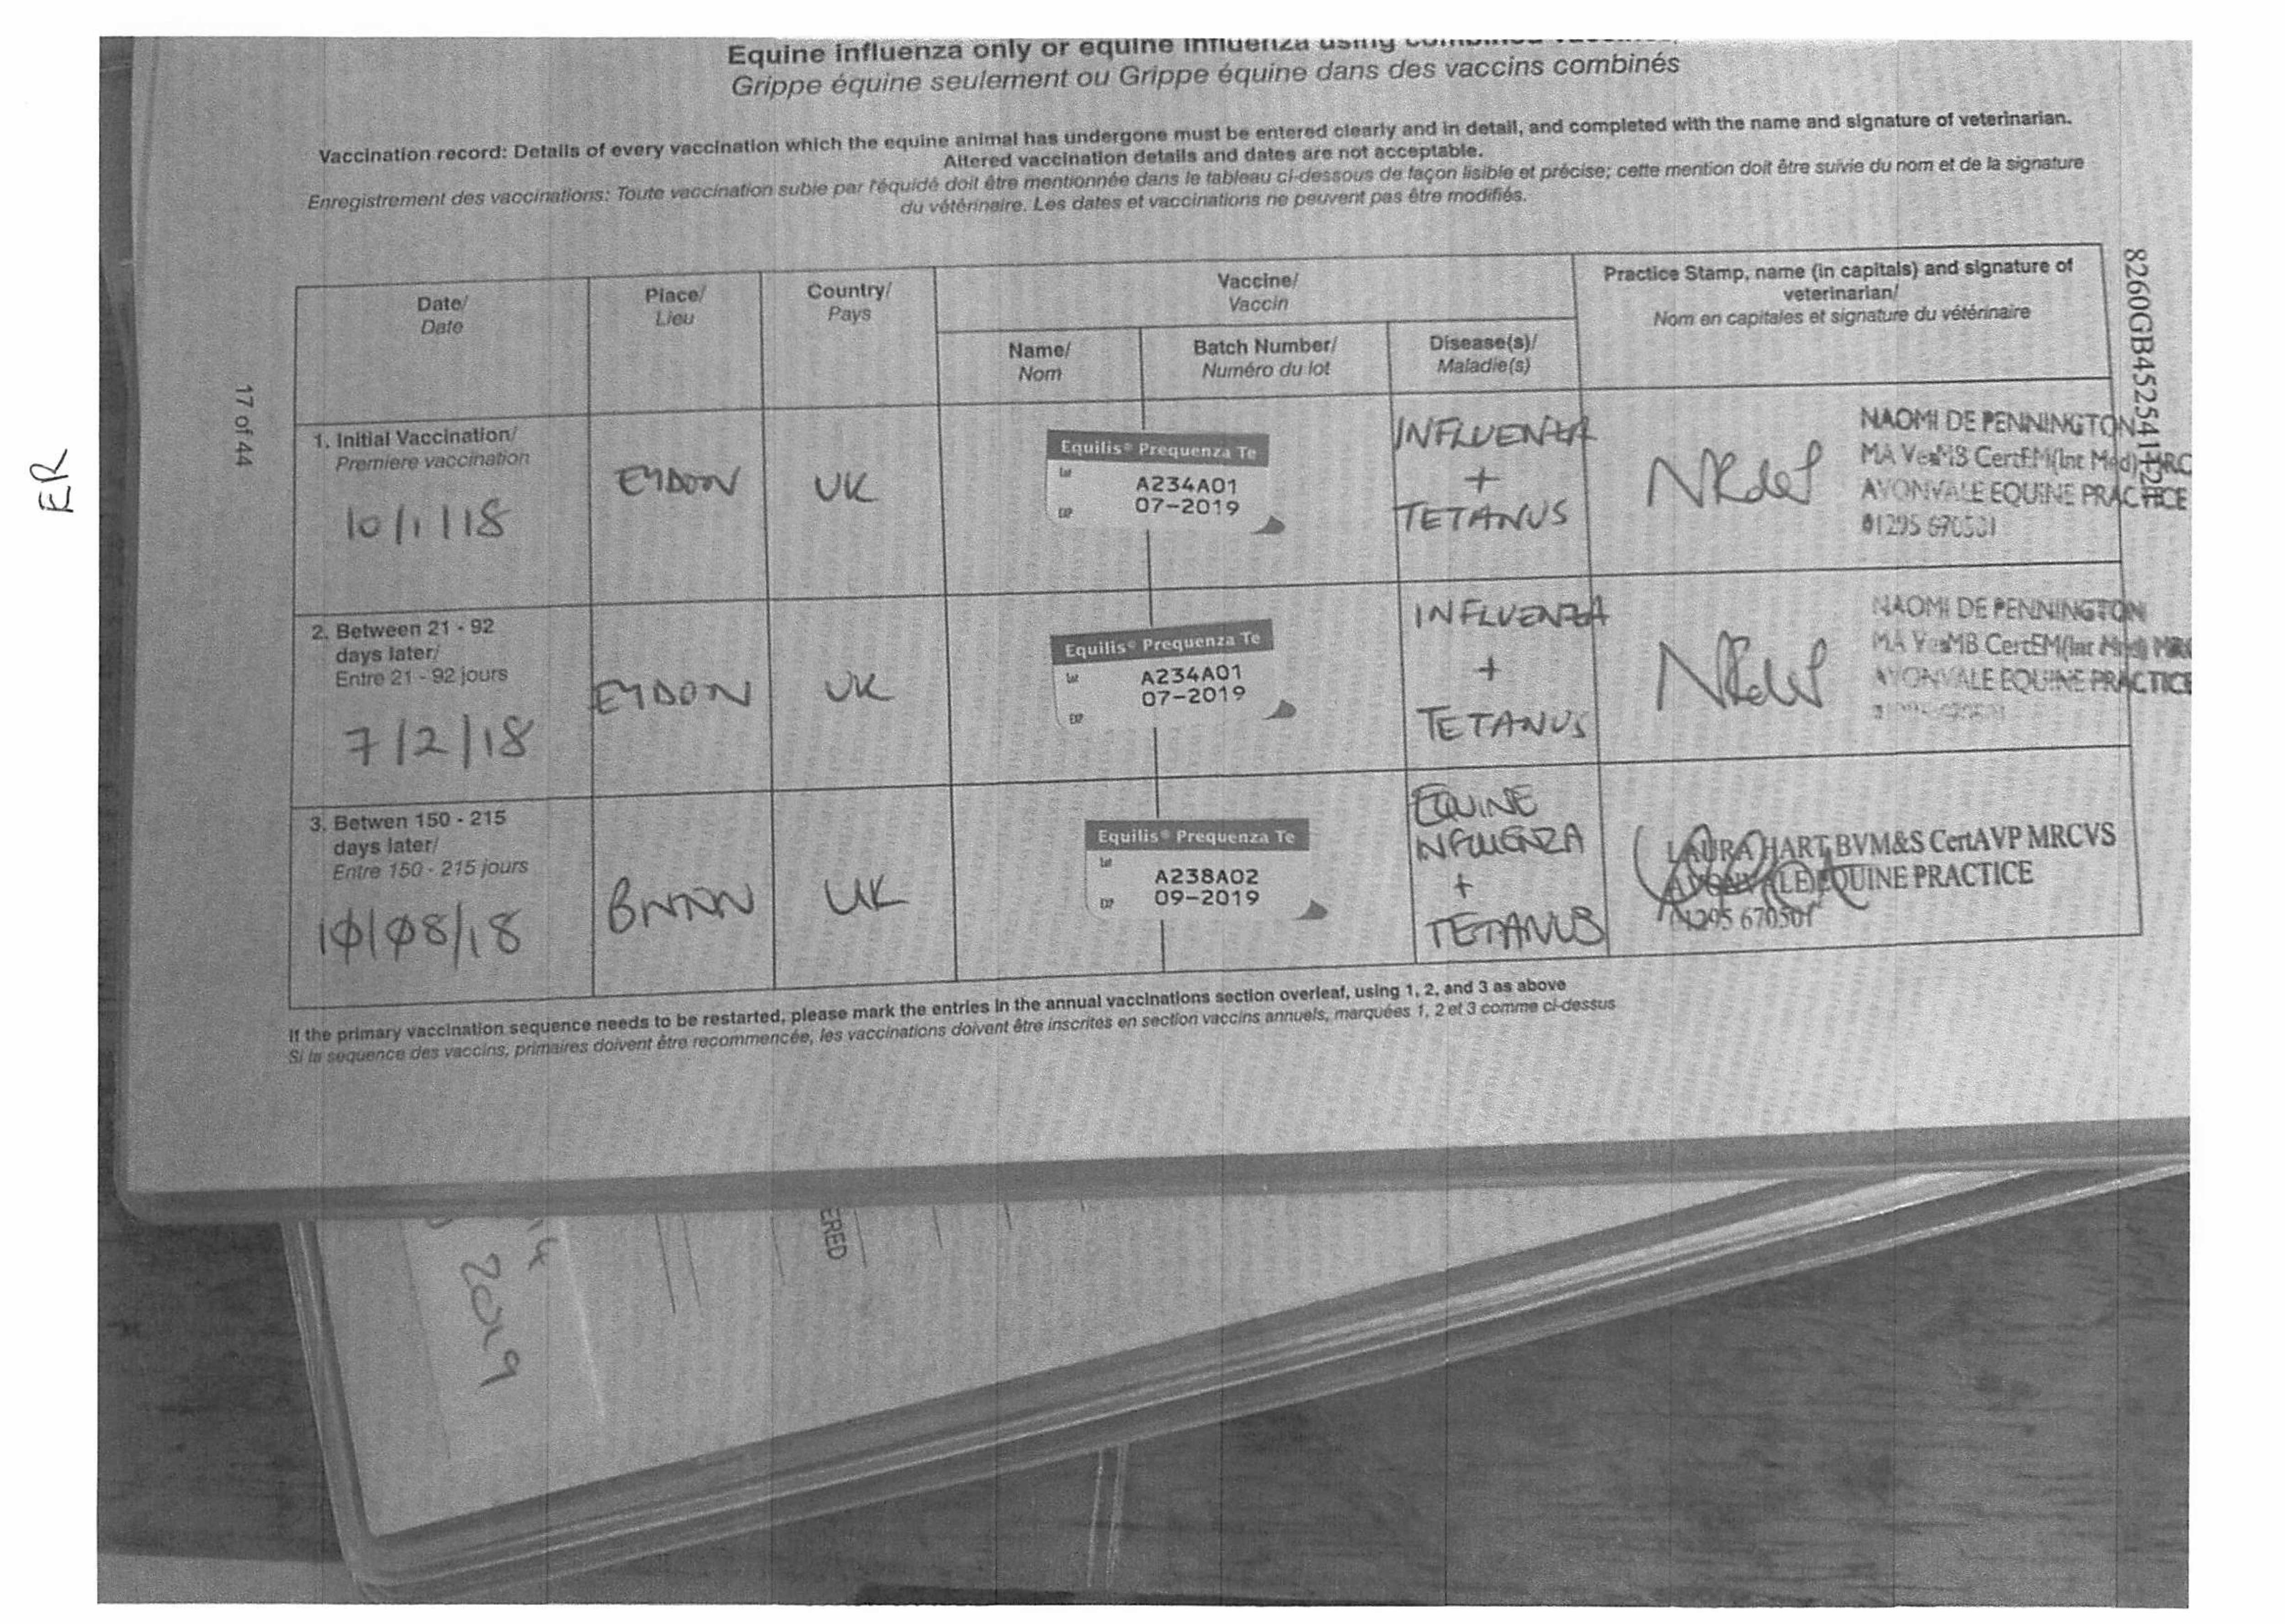 Equine influenza only or equine influenza using
Grippe équine seulement ou Grippe équine dans des vaccins combinés
Vaccination record: Details of every vaccination which the equine animal has undergone must be entered clearly and in detail, and completed with the name and signature of veterinarian.
Altered vaccination details and dates are not acceptable.
Enregistrement des vaccinations: Toute vaccination subie par l'équidé doit être mentionnée dans le tableau ci-dessous de façon lisible et précise; cette mention doit être suivie du nom et de la signature
du vétérinaire. Les dates et vaccinations ne peuvent pas être modifiés.
Date/
Date
Place/
Lieu
Country/
Pays
Vaccine/
Vaccin
Name/
Nom
Batch Number/
Numéro du lot
Disease(s)/
Maladie(s)
Practice Stamp, name (in capitals) and signature of
veterinarian/
Nom en capitales et signature du vétérinaire
1. Initial Vaccination/
Premiere vaccination
10/1/18
EYDON
UK
Equilis® Prequenza Te
Lot
A234A01
EXP
07-2019
INFLUENZA
+
TETANUS
NAOMI DE PENNINGTON
MA VetMB CertEM(Int Med)
AVONVALE EQUINE PRACTICE
01295 670501
2. Between 21 - 92
days later/
Entre 21 - 92 jours
7/2/18
EYDON
UK
Equilis® Prequenza Te
Lot
A234A01
07-2019
EXP
INFLUENZA
+
TETANUS
NAOMI DE PENNINGTON
MA VetMB CertEM(Int Med)
AVONVALE EQUINE PRACTICE
3. Betwen 150 - 215
days later/
Entre 150 - 215 jours
10/08/18
UK
Equilis® Prequenza Te
Lot
A238A02
EXP
09-2019
EQUINE
INFLUENZA
+
TETANUS
LAURA HART BVM&S CertAVP MRCVS
AVONVALE EQUINE PRACTICE
01295 670501
If the primary vaccination sequence needs to be restarted, please mark the entries in the annual vaccinations section overleaf, using 1, 2, and 3 as above
Si la sequence des vaccins, primaires doivent être recommencée, les vaccinations doivent être inscrites en section vaccins annuels, marquées 1, 2 et 3 comme ci-dessus
17 of 44
ER
ERED
2019